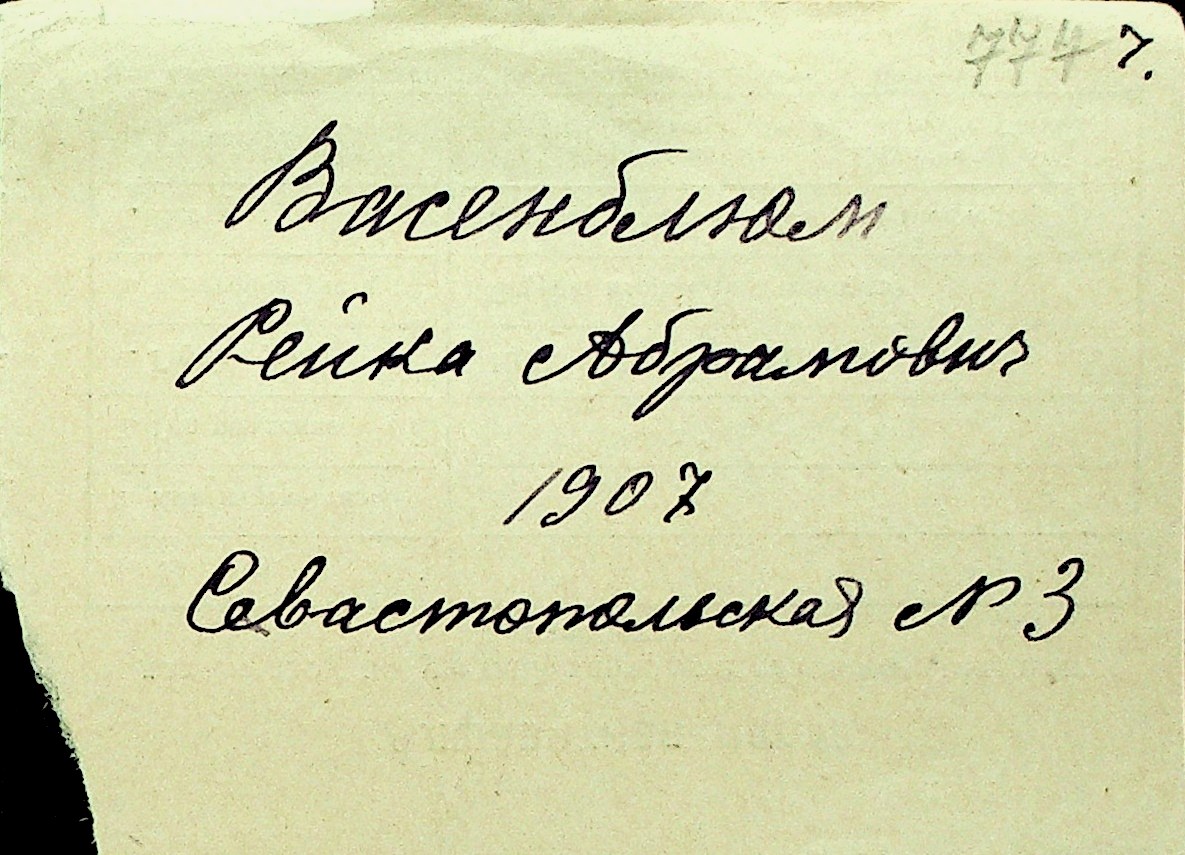 774 7.
Васенблюм
Рейка Абрамович
1907
Севастопольская № 3